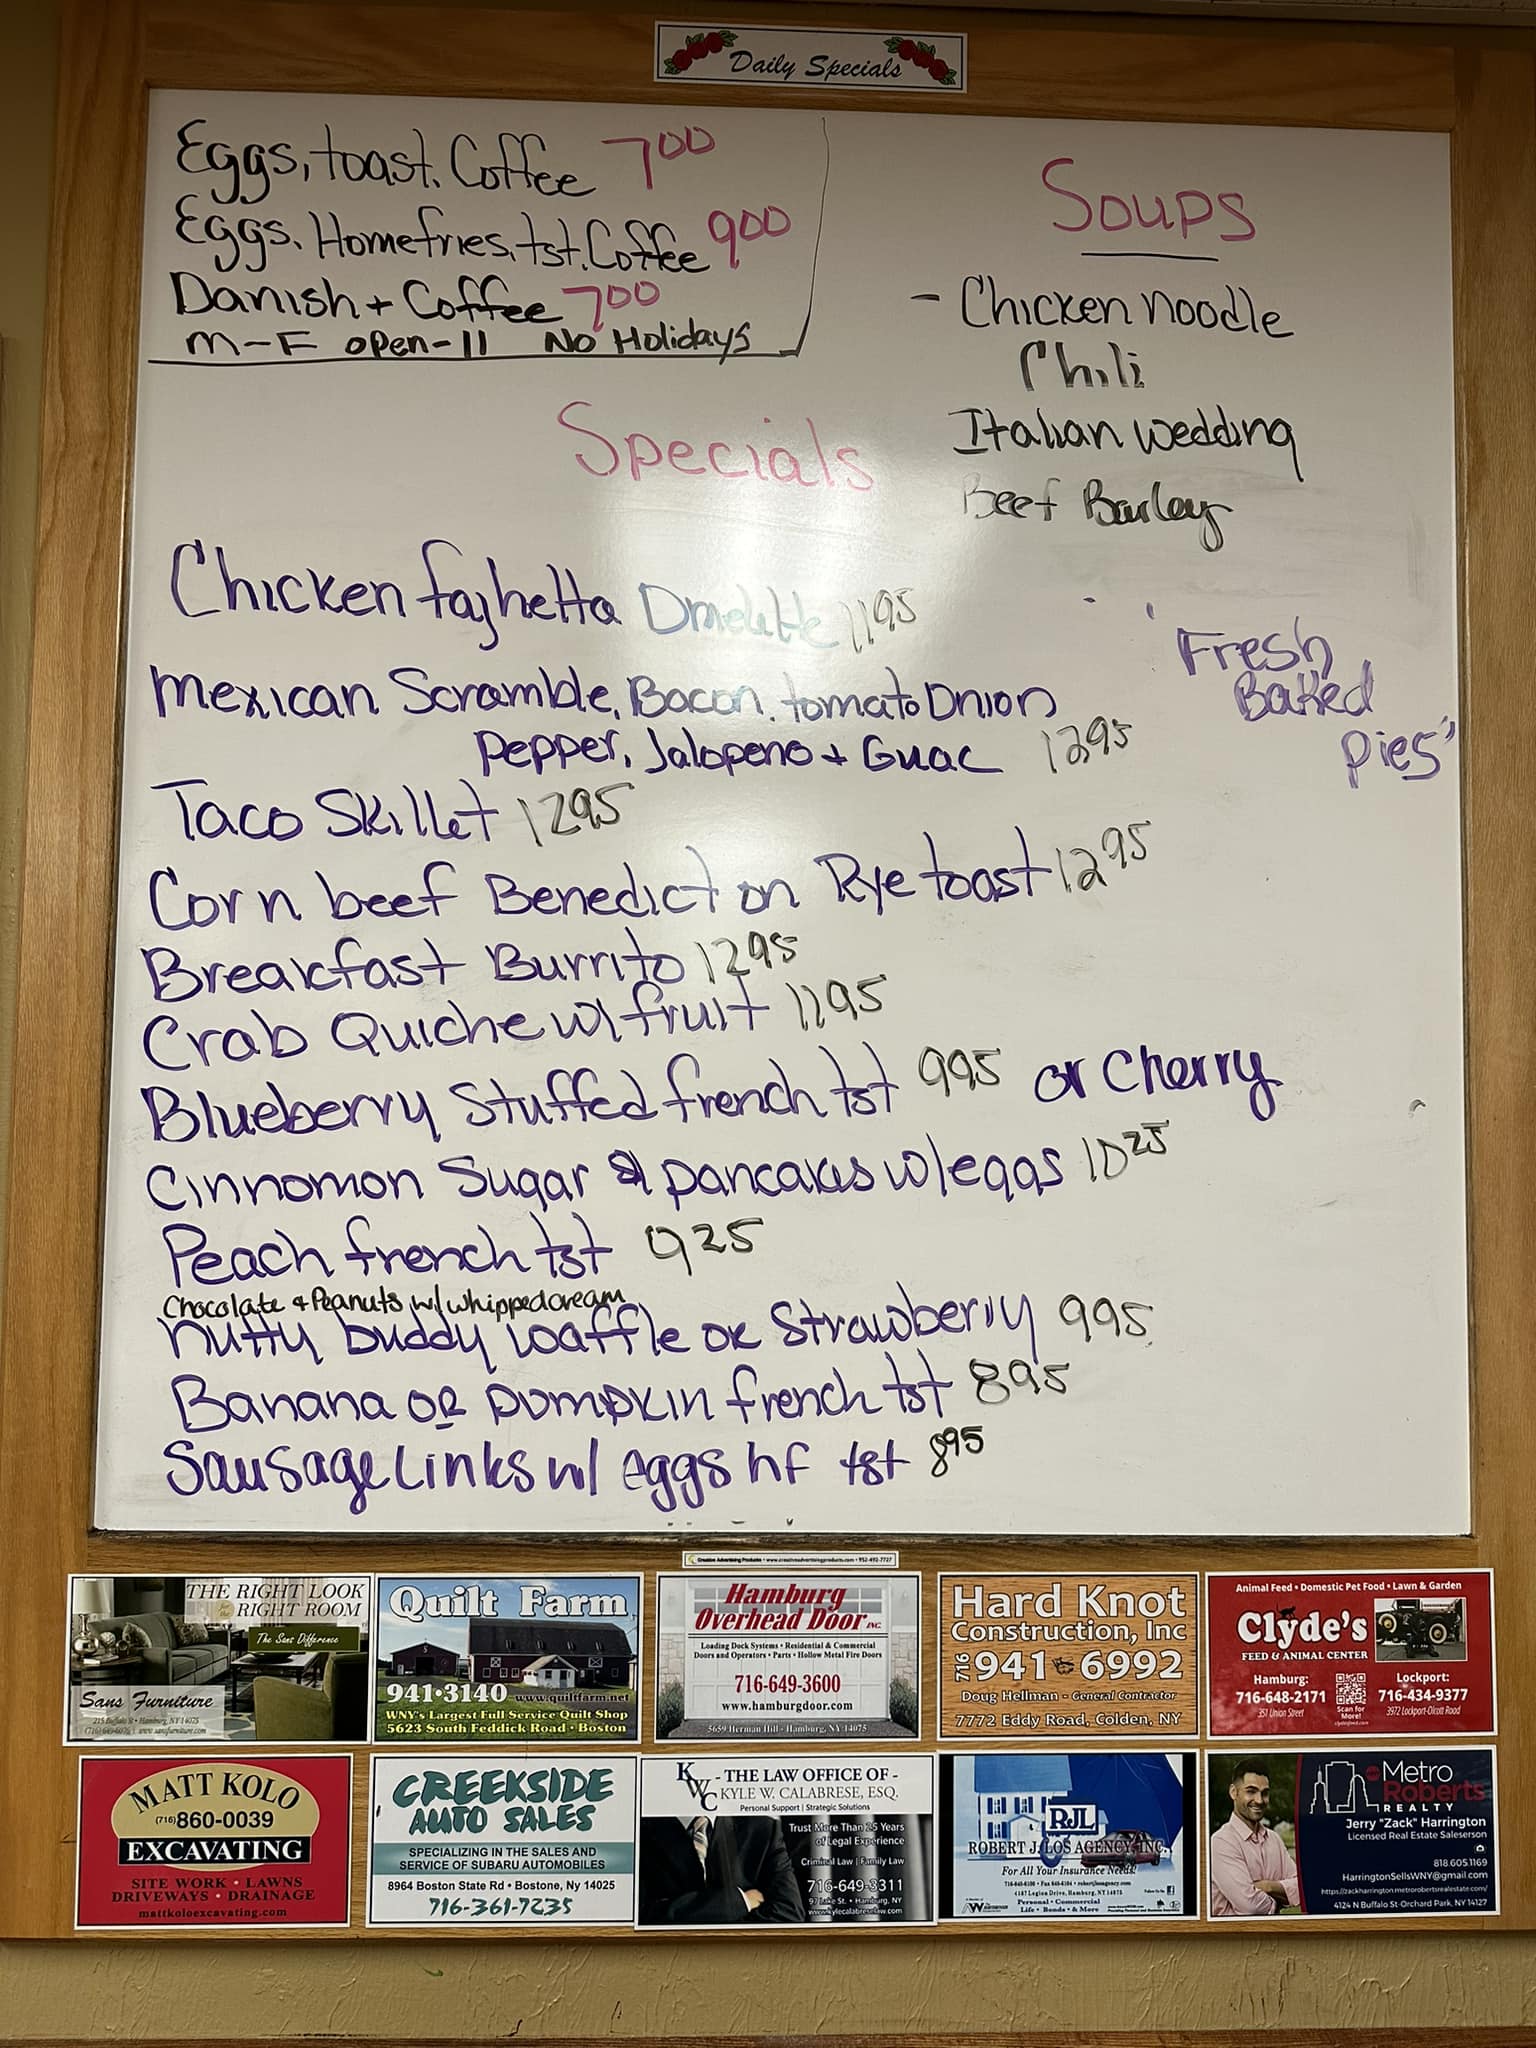 Daily Specials
Eggs, toast. Coffee 7.00
Eggs. Homefries, tst. Coffee 9.00
Danish + Coffee 7.00
M-F open-11 No Holidays
Soups
- Chicken noodle
Chili
Italian wedding
Beef Barley
Specials
Chicken fajhetta Omelette 1195
"Fresh
Baked
pies"
Mexican Scramble, Bacon, tomato Onion
pepper, Jalopeno + Guac 1295
Taco Skillet 1295
Corn beef Benedict on Rye toast 1295
Breakfast Burrito 1295
Crab Quiche w/ fruit 1195
Blueberry Stuffed french tst 995 or Cherry
Cinnomon Sugar pancakes w/eggs 1025
Peach french tst 925
Chocolate & Peanuts w/ whipped cream
nutty buddy waffle or Strawberry 995
Banana or pumpkin french tst 895
Sausage Links w/ eggs hf tst 895
Creative Advertising Products • www.creativeadvertisingproducts.com • 952-492-7727
THE RIGHT LOOK
for the
RIGHT ROOM
The Sans Difference
Sans Furniture
215 Buffalo St • Hamburg, NY 14075
(716) 649-6076 | www.sansfurniture.com
Quilt Farm
941•3140 www.quiltfarm.net
WNY's Largest Full Service Quilt Shop
5623 South Feddick Road • Boston
Hamburg
Overhead Door INC.
Loading Dock Systems • Residential & Commercial
Doors and Operators • Parts • Hollow Metal Fire Doors
716-649-3600
www.hamburgdoor.com
5659 Herman Hill • Hamburg, NY 14075
Hard Knot
Construction, Inc
716 941 6992
Doug Hellman - General Contractor
7772 Eddy Road, Colden, NY
Animal Feed • Domestic Pet Food • Lawn & Garden
Clyde's
FEED & ANIMAL CENTER
Hamburg:
716-648-2171
351 Union Street
Scan for
More!
Lockport:
716-434-9377
3972 Lockport-Olcott Road
MATT KOLO
(716) 860-0039
EXCAVATING
SITE WORK • LAWNS
DRIVEWAYS • DRAINAGE
mattkoloexcavating.com
CREEKSIDE
AUTO SALES
SPECIALIZING IN THE SALES AND
SERVICE OF SUBARU AUTOMOBILES
8964 Boston State Rd • Bostone, Ny 14025
716-361-7235
KWC
- THE LAW OFFICE OF -
KYLE W. CALABRESE, ESQ.
Personal Support | Strategic Solutions
Trust More Than 25 Years
of Legal Experience
Criminal Law | Family Law
716-649-3311
97 Lake St. • Hamburg, NY
www.kylecalabreselaw.com
RJL
ROBERT J. LOS AGENCY, INC.
For All Your Insurance Needs!
4187 Legion Drive, Hamburg, NY 14075
Personal • Commercial
Life • Bonds • & More
Metro
Roberts
REALTY
Jerry "Zack" Harrington
Licensed Real Estate Saleserson
818.605.1169
HarringtonSellsWNY@gmail.com
https://zackharrington.metrorobertsrealestate.com/
4124 N Buffalo St-Orchard Park, NY 14127